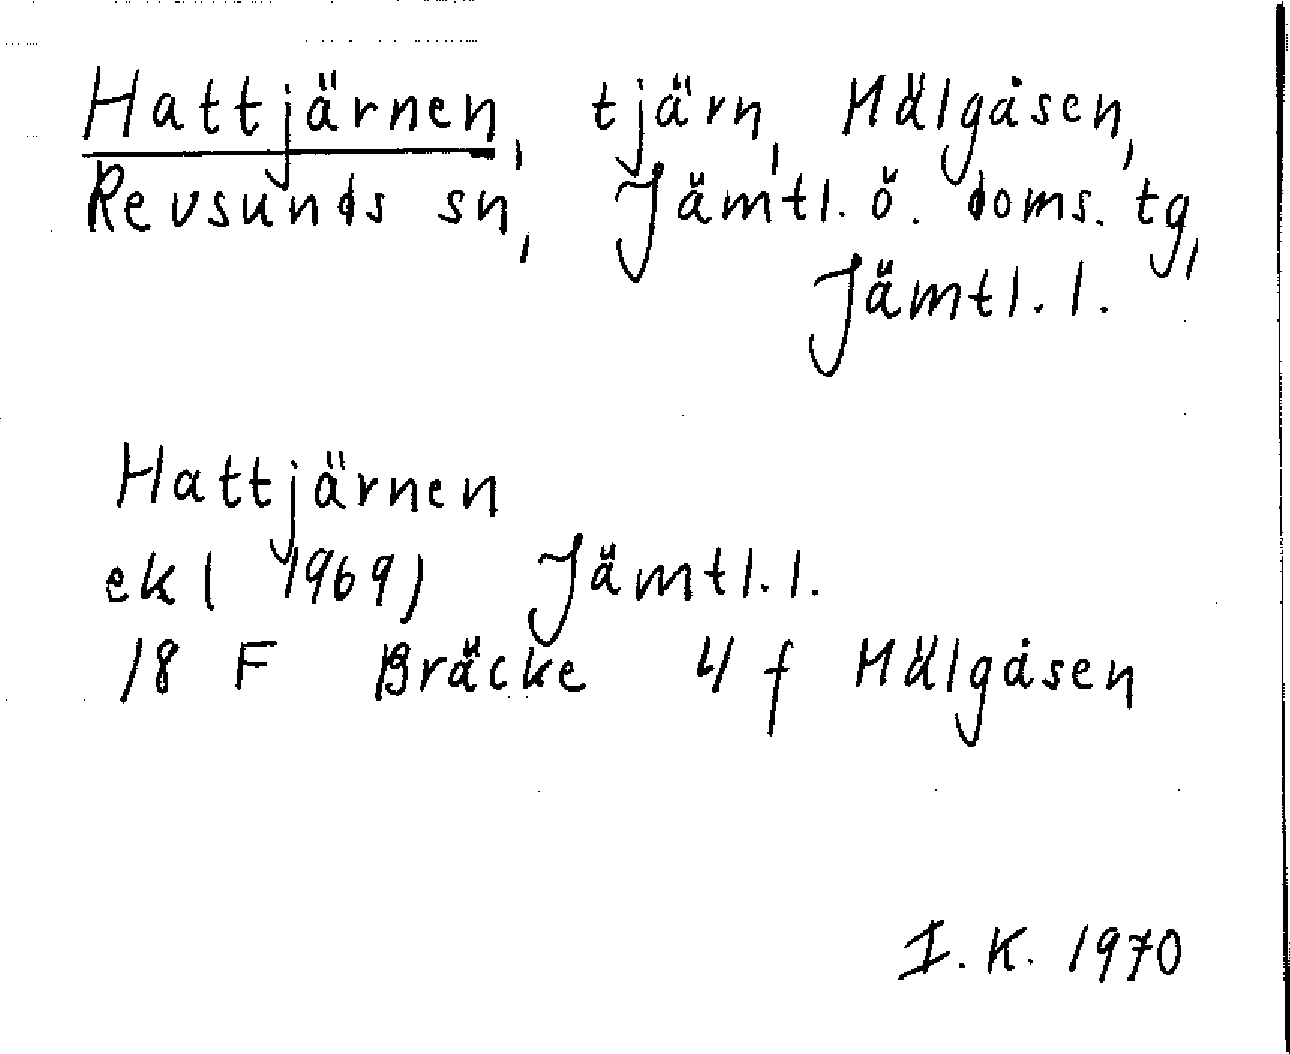 Hattjärnen, tjärn, Hälgåsen,
Revsunds sn, Jämtl. ö. doms. tg,
Jämtl. l.
Hattjärnen
ek (1969) Jämtl. l.
18 F Bräcke 4 f Hälgåsen
I. K. 1970